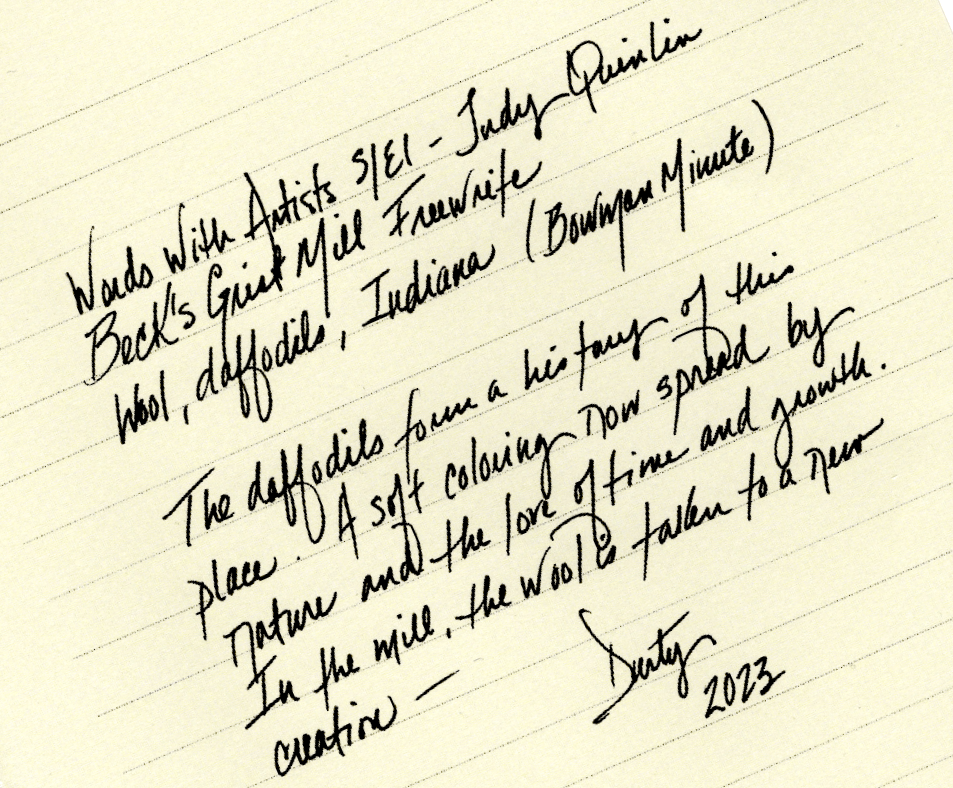 Words With Artists S1E1 - Judy Quinlin
Beck's Grist Mill Freewrite
Wool, daffodils, Indiana (Bowman Minute)
The daffodils form a history of this
place. A soft coloring now spread by
nature and the love of time and growth.
In the mill, the wool is taken to a new
creation —
2023